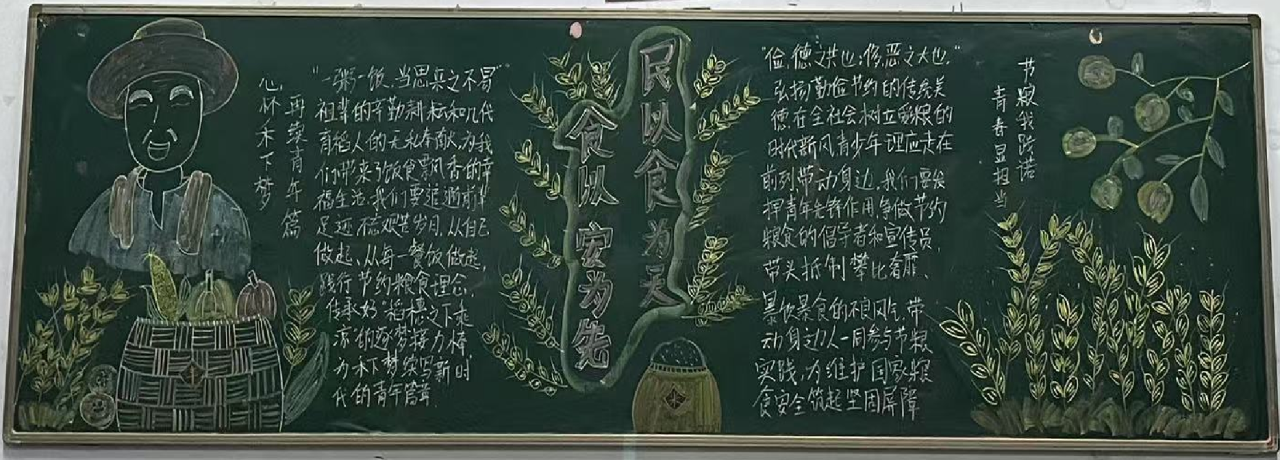 心怀禾下梦
再擎青年篇
"一粥一饭,当思来之不易"
祖辈的辛勤耕耘和几代
育稻人的无私奉献,为我
们带来了饭食飘香的幸
福生活,我们要追逝前辈
足迹不忘艰苦岁月,从自己
做起、从每一餐饭做起,
践行节约粮食理念,
传承好"稻穗之下乘
凉"的逐梦接力棒,
为禾下梦续写新时
代的青年篇章
民以食为天
食以安为先
"俭,德之共也;侈,恶之大也"
弘扬勤俭节约的传统美
德在全社会树立爱粮的
时代新风青少年理应走在
前列带动身边,我们要发
挥青年先锋作用,争做节约
粮食的倡导者和宣传员,
带头抵制攀比奢靡、
暴饮暴食的不良风气,带
动身边人一同参与节粮
实践,为维护国家粮
食安全筑起坚固屏障
节粮我践诺
青春显担当